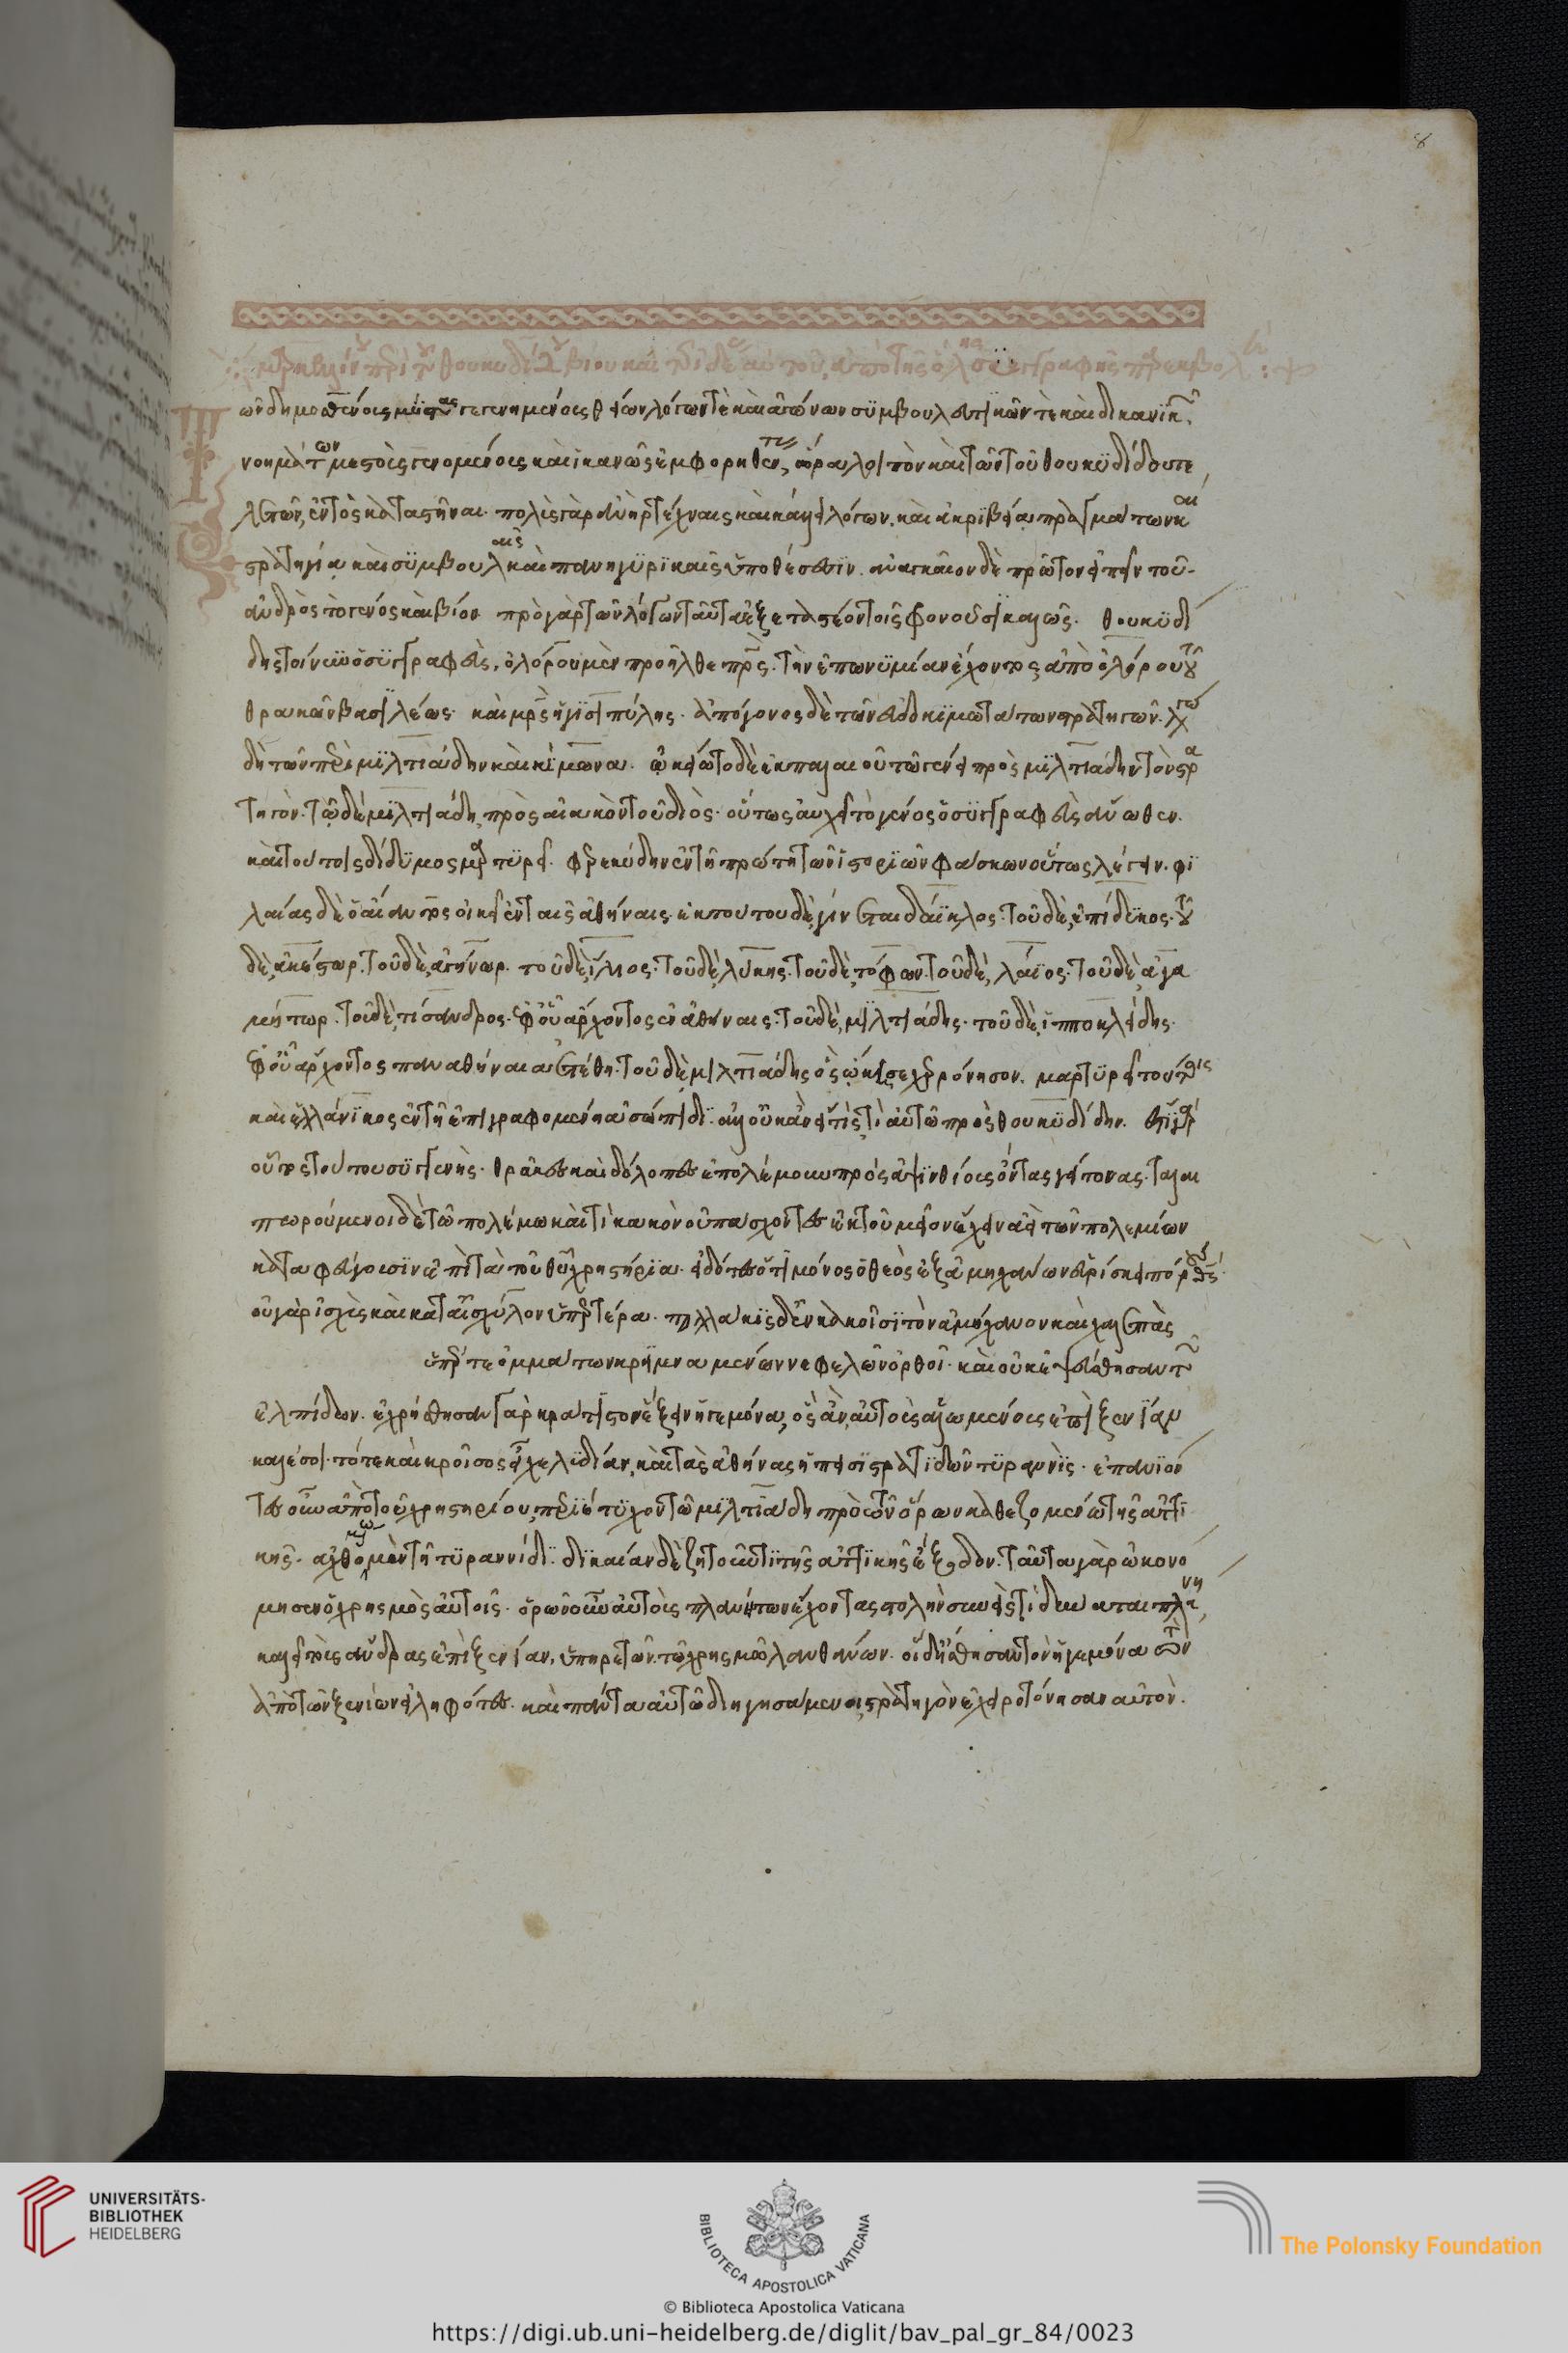 8
μαρκελλίνου περὶ τοῦ θουκυδίδου βίου καὶ τῆς ἰδέας αὐτοῦ, ἀπὸ τῆς ὅλης συγγραφῆς παρεκβολή :
Τῶν δημοσθένους μύστας γεγενημένους θείων λόγων τὲ καὶ ἀγώνων συμβουλευτικῶν τὲ καὶ δικανικῶν
νοημάτων μεστοὺς γενομένους καὶ ἱκανῶς ἐμφορηθέντας, ὥρα λοιπὸν καὶ τῶν τοῦ θουκυδίδου τε
λετῶν, ἐντὸς καταστῆναι. πολὺς γὰρ ἀνὴρ τέχναις καὶ κάλλει λόγων. καὶ ἀκριβείᾳ πραγμάτων καὶ
στρατηγίᾳ καὶ συμβουλαῖς καὶ πανηγυρικαῖς ὑποθέσεσιν. ἀναγκαῖον δὲ πρῶτον εἰπεῖν τοῦ
ἀνδρὸς τὸ γένος καὶ βίον. πρὸ γὰρ τῶν λόγων ταῦτα ἐξεταστέον τοῖς φρονοῦσι καλῶς. θουκυδί
δης τοίνυν ὁ συγγραφεὺς, ὀλόρου μὲν προῆλθε πατρὸς. τὴν ἐπωνυμίαν ἔχοντος ἀπὸ ὀλόρου τοῦ
θρακῶν βασιλέως. καὶ μητρὸς ἡγισιπύλης. ἀπόγονος δὲ τῶν εὐδοκιμωτάτων στρατηγῶν. λέγω
δὴ τῶν περὶ μιλτιάδην καὶ κίμωνα. ᾠκείωτο δὲ ἐκ παλαιοῦ τῷ γένει πρὸς μιλτιάδην τὸν στρα
τηγόν. τῷ δὲ μιλτιάδῃ πρὸς αἰακὸν τοῦ διὸς. οὕτως αὐχεῖ τὸ γένος ὁ συγγραφεὺς ἄνωθεν.
καὶ τούτοις δίδυμος μαρτυρεῖ. φερεκύδην ἐν τῇ πρώτῃ τῶν ἱστοριῶν φάσκων οὕτως λέγειν. φι
λαίας δὲ ὁ αἴαντος οἰκεῖ ἐν ταῖς ἀθήναις. ἐκ τούτου δὲ γίνεται δάϊκλος. τοῦ δὲ, ἐπίδυκος. τοῦ
δὲ, ἀκέστωρ. τοῦ δὲ, ἀγήνωρ. τοῦ δὲ, ὔλιος. τοῦ δὲ, λύκης. τοῦ δὲ, τόφων. τοῦ δὲ, λάϊος. τοῦ δὲ, ἀγα
μήστωρ. τοῦ δὲ, τίσανδρος. ἐφ' οὗ ἄρχοντος ἐν ἀθήναις. τοῦ δὲ, μιλτιάδης. τοῦ δὲ, ἱπποκλείδης.
ἐφ' οὗ ἄρχοντος παναθήναια ἐτέθη. τοῦ δὲ μιλτιάδης ὃς ᾤκησε χερρόνησον. μαρτυρεῖ τούτοις
καὶ ἑλλάνικος ἐν τῇ ἐπιγραφομένῃ ἀσώπιδι. ἀλλ' οὐκ ἂν εἴποι τις τί αὐτῷ πρὸς θουκυδίδην. ἔστι γάρ
οὗτος τούτου συγγενής. θρᾷκες καὶ δόλοπες ἐπολέμουν πρὸς ἀψινθίους ὄντας γείτονας. ταλαι
πωρούμενοι δὲ τῷ πολέμῳ καὶ τί κακὸν οὐ πάσχοντες ἐκ τοῦ μεῖον ἔχειν ἀεὶ τῶν πολεμίων
καταφεύγουσιν ἐπὶ τὰ τοῦ θεοῦ χρηστήρια. εἰδότες ὅτι μόνος ὁ θεὸς ἐξ ἀμηχάνων εὑρίσκει πόρους.
οὐ γὰρ ἰσχὺς καὶ κατ' αἰσχύλον ὑπερτέρα. πολλάκις δ' ἐν κακοῖσι τὸν ἀμήχανον καὶ χαλεπὰς
ὑπέρ τε ὀμμάτων κρημναμενῶν νεφελῶν ὀρθοῖ. καὶ οὐκ ἐψεύσθησαν τῶν
ἐλπίδων. ἐχρήσθησαν γὰρ κράτιστον ἕξειν ἡγεμόνα, ὃς ἂν αὐτοὺς ἀλωμένους ἐπὶ ξενίαν
καλέσοι. τότε καὶ κροῖσος εἶχε λυδίαν, καὶ τὰς ἀθήνας ἡ πεισιστρατιδῶν τυραννὶς. ἐπανϊόν
τες οὖν ἀπὸ τοῦ χρηστηρίου, περιέτυχον τῷ μιλτιάδῃ πρὸ τῶν ὅρων καθεζομένῳ τῆς ἀττι
κῆς. ἀχθομένῳ μὲν τῇ τυραννίδι. δικαίαν δὲ ζητοῦντι τῆς ἀττικῆς ἔξοδον. ταῦτα γὰρ ᾠκονό
μησεν ὁ χρησμὸς αὐτοῖς. ὁρῶν οὖν αὐτοὺς πλανήτων ἔχοντας στολὴν συνεὶς τί δύναται πλάνη,
καλεῖ τοὺς ἄνδρας ἐπὶ ξενίαν, ὑπηρετῶν τῷ χρησμῷ λανθάνων. οἱ δὲ ἥσθησαν τὸν ἡγεμόνα τὸν
ἀπὸ τῶν ξενίων εἰληφότες. καὶ πάντα αὐτῷ διηγησάμενοι, στρατηγὸν ἐχειροτόνησαν αὐτὸν.
UNIVERSITÄTS-
BIBLIOTHEK
HEIDELBERG
BIBLIOTECA APOSTOLICA VATICANA
© Biblioteca Apostolica Vaticana
The Polonsky Foundation
https://digi.ub.uni-heidelberg.de/diglit/bav_pal_gr_84/0023